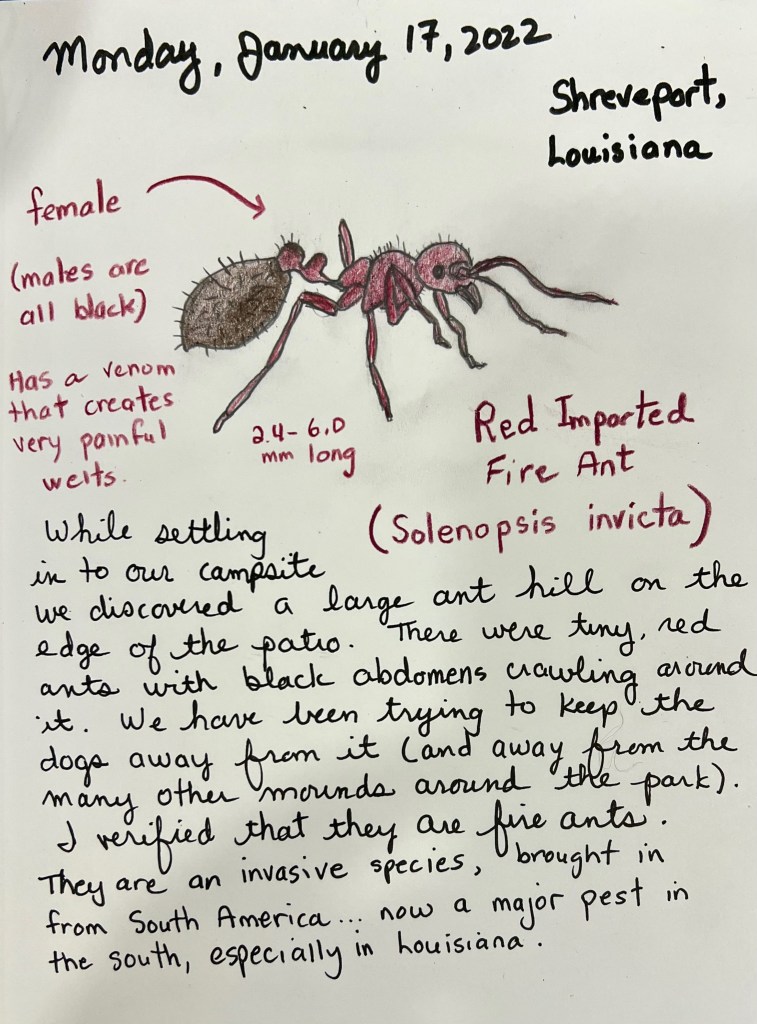 Monday, January 17, 2022
Shreveport,
Louisiana
female
(males are
all black)
Has a venom
that creates
very painful
welts.
2.4-6.0
mm long
Red Imported
Fire Ant
(Solenopsis invicta)
While settling
in to our campsite
we discovered a large ant hill on the
edge of the patio. There were tiny, red
ants with black abdomens crawling around
it. We have been trying to keep the
dogs away from it (and away from the
many other mounds around the park).
I verified that they are fire ants.
They are an invasive species, brought in
from South America... now a major pest in
the south, especially in Louisiana.